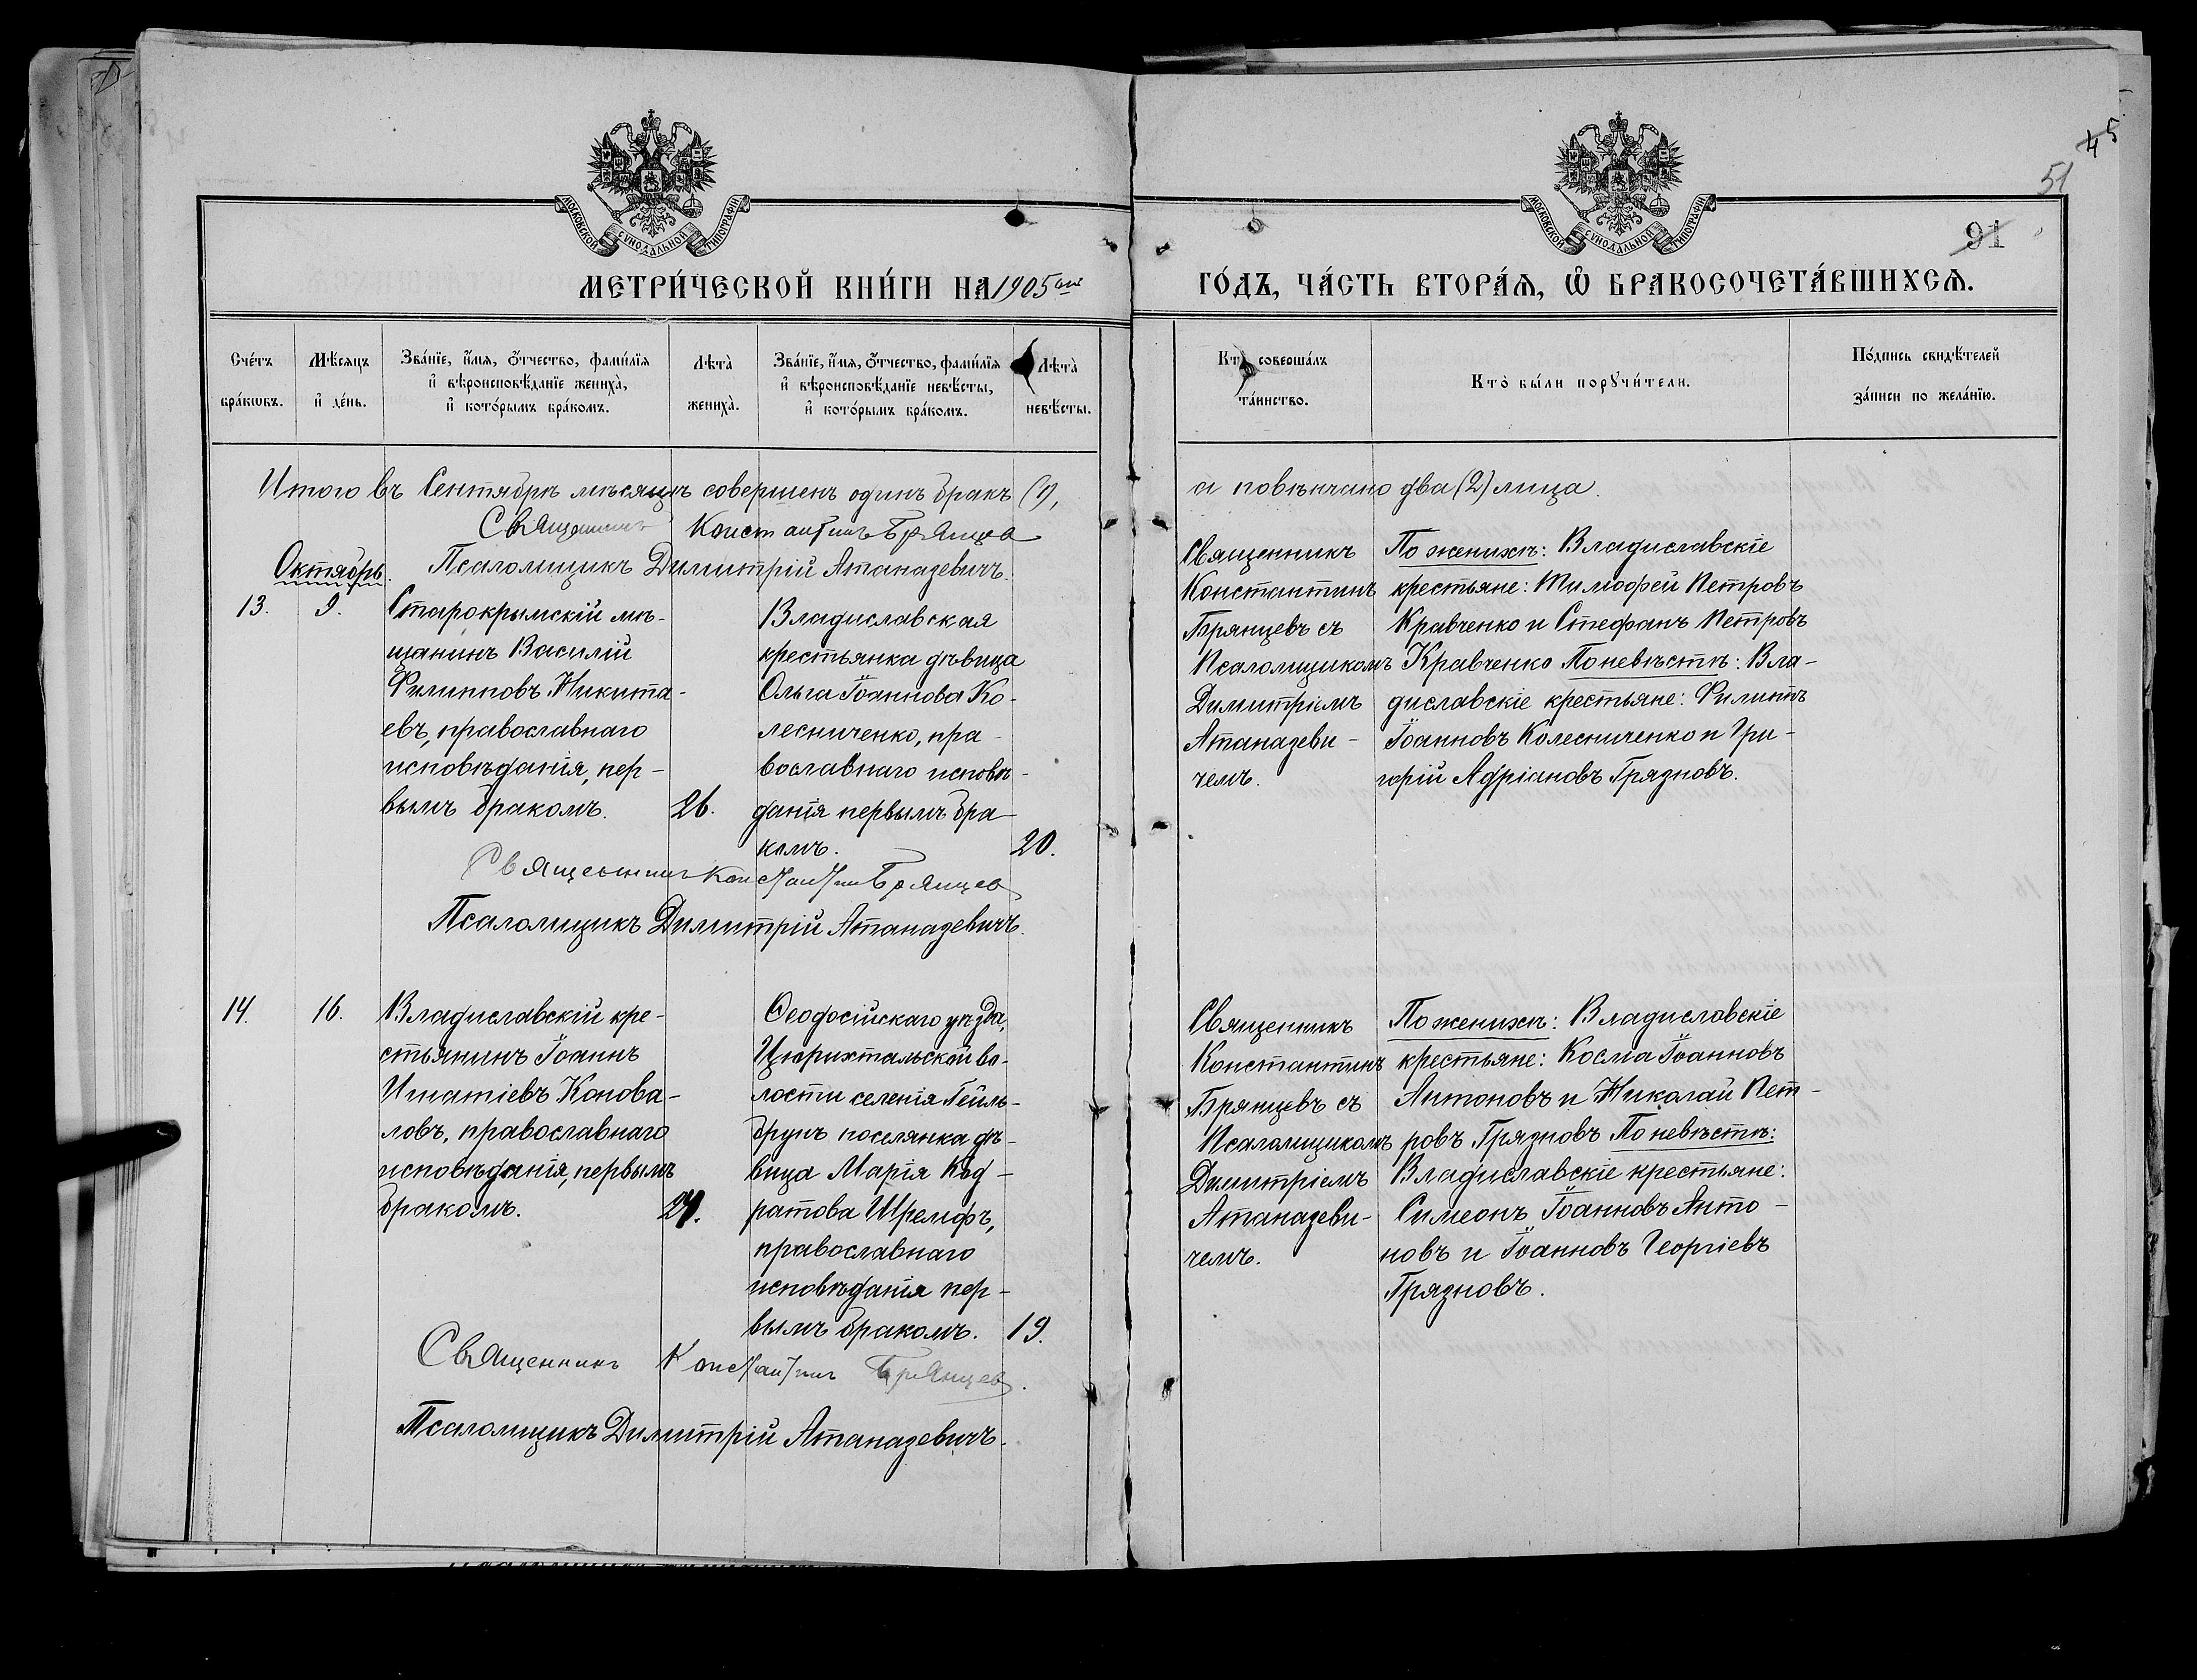 45
51
91
МОСКОВСКОЙ СУНОДАЛЬНОЙ ТИПОГРАФІИ
МОСКОВСКОЙ СУНОДАЛЬНОЙ ТИПОГРАФІИ
МЕТРИ́ЧЕСКОЙ КНИ́ГИ НА 1905 ый
ГО́ДЪ, ЧА́СТЬ ВТОРА́Ѧ, Ѡ҆ БРАКОСОЧЕТА́ВШИХСѦ.
Сче́тъ бра́кѡвъ.
Мѣ́сѧцъ и҆ де́нь.
Зва́нїе, и҆́мѧ, ѻ҆́тчество, фами́лїѧ
и҆ вѣроисповѣ́данїе жениха̀,
и҆ кото́рымъ бра́комъ.
Лѣта̀ жениха̀.
Зва́нїе, и҆́мѧ, ѻ҆́тчество, фами́лїѧ
и҆ вѣроисповѣ́данїе невѣ́сты,
и҆ кото́рымъ бра́комъ.
Лѣта̀ невѣ́сты.
Кто̀ соверша́лъ
та́инство.
Кто̀ бы́ли порꙋчи́тели.
По́дпись свидѣ́телей
за́писи по жела́нїю.
Итого въ Сентябрѣ мѣсяцѣ совершенъ одинъ бракъ (1),
а повѣнчано два (2) лица.
Священникъ Константинъ Брянцев
Псаломщикъ Димитрій Атаназевичъ.
Октябрь.
13.
9.
Старокрымскій мѣ-
щанинъ Василій
Филипповъ Никита-
евъ, православнаго
исповѣданія, пер-
вымъ бракомъ.
26.
Владиславская
крестьянка дѣвица
Ольга Іоаннова Ко-
лесниченко, пра-
вославнаго исповѣ-
данія первымъ бра-
комъ.
20.
Священникъ
Константинъ
Брянцевъ съ
Псаломщикомъ
Димитріемъ
Атаназеви-
чемъ.
По женихѣ: Владиславскіе
крестьяне: Тимофей Петровъ
Кравченко и Стефанъ Петровъ
Кравченко По невѣстѣ: Вла-
диславскіе крестьяне: Филиппъ
Іоанновъ Колесниченко и Гри-
горій Адріановъ Грязновъ.
Священникъ Константинъ Брянцев
Псаломщикъ Димитрій Атаназевичъ.
14.
16.
Владиславскій кре-
стьянинъ Іоаннъ
Игнатіевъ Конова-
ловъ, православнаго
исповѣданія, первымъ
бракомъ.
24.
Ѳеодосійскаго уѣзда,
Цюрихтальской во-
лости селенія Гейль-
брунъ поселянка дѣ-
вица Марія Код-
ратова Шремфъ,
православнаго
исповѣданія пер-
вымъ бракомъ.
19.
Священникъ
Константинъ
Брянцевъ съ
Псаломщикомъ
Димитріемъ
Атаназеви-
чемъ.
По женихѣ: Владиславскіе
крестьяне: Косма Іоанновъ
Антоновъ и Николай Пет-
ровъ Грязновъ По невѣстѣ:
Владиславскіе крестьяне:
Симеонъ Іоанновъ Анто-
новъ и Іоанновъ Георгіевъ
Грязновъ.
Священникъ Константинъ Брянцев.
Псаломщикъ Димитрій Атаназевичъ.